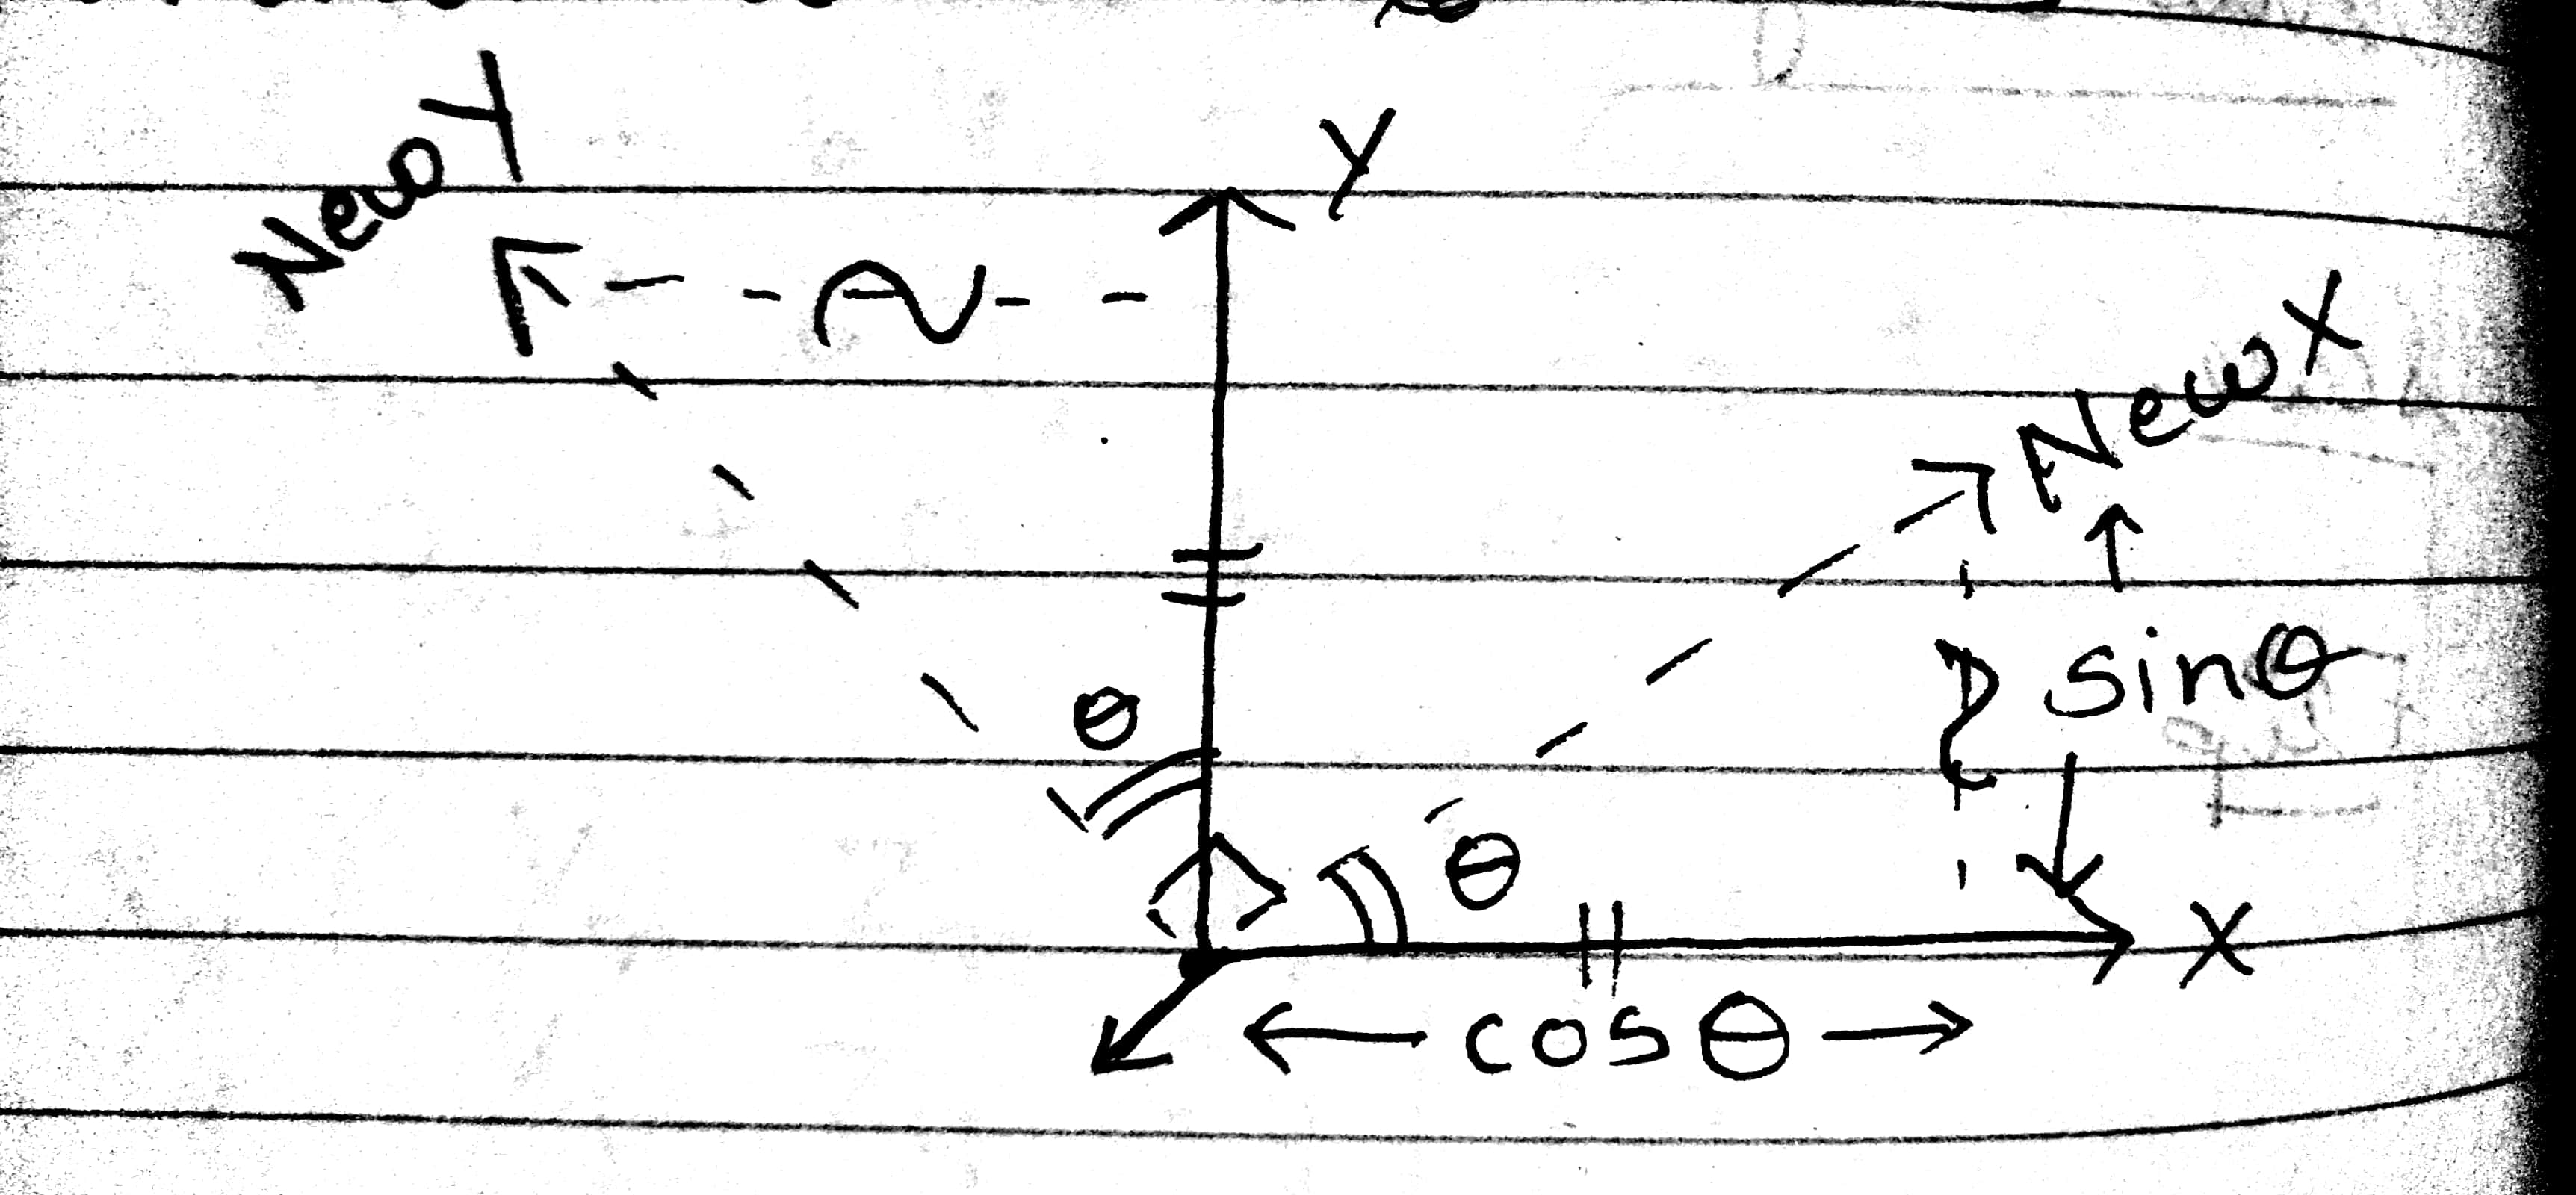 New Y
Y
New X
sinθ
θ
θ
X
cosθ